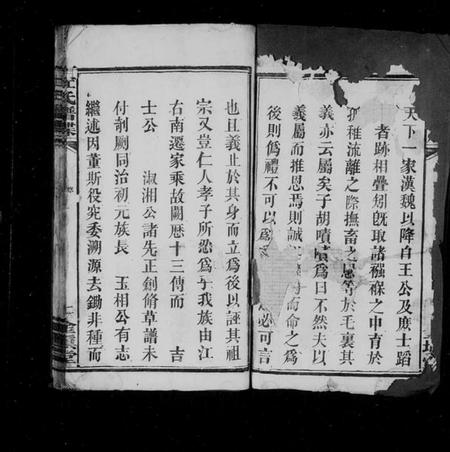 天下一家漢魏以降自王公及庶士蹈
者跡相疊矧旣取諸襁褓之中育於
孤稚流離之際撫畜之恩等於毛裏其
義亦云屬矣子胡嘖嘖爲曰不然夫以
義屬而推恩焉則誠
而命之爲
後則僞禮不可以爲
必可言
也且義止於其身而立爲後以誣其祖
宗又豈仁人孝子所忍爲乎我族由江
右南遷家乘故闕歷十三傳而 吉
士公 淑湘公諸先正創脩草譜未
付剞劂同治初元族長 玉相公有志
繼述因董斯役究委溯源去鋤非種而